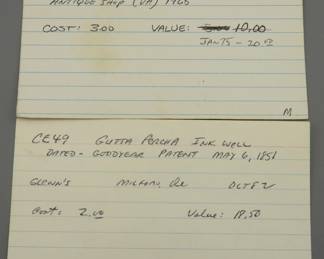 ANTIQUE SHOP (VA) 1965
COST: 3.00 VALUE: 10.00
JAN 75 - 20.00
M
CE49 GUTTA PERCHA INK WELL
DATED - GOODYEAR PATENT MAY 6, 1851
GLENN'S MILFORD, De OCT 82
Cost: 2.00 Value: 18.50